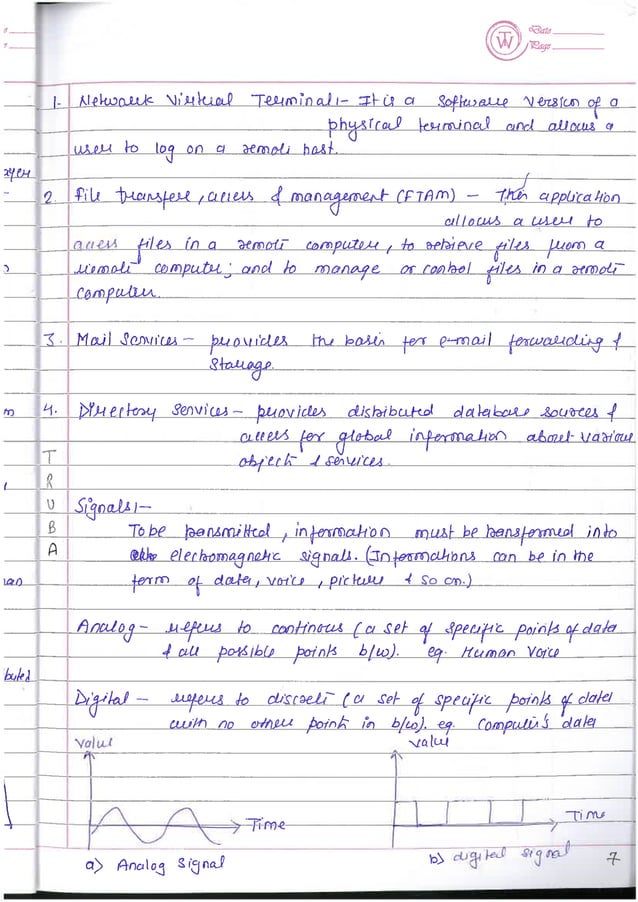 Date
Page
TW
1. Network Virtual Terminal:- It is a software version of a
physical terminal and allows a
user to log on a remote host.
2. File transfer, access & management (FTAM) - This application
allows a user to
access files in a remote computer, to retrieve files from a
remote computer; and to manage or control files in a remote
computer.
3. Mail Services - provides the basis for e-mail forwarding &
storage.
4. Directory services - provides distributed database sources &
access for global information about various
object & services.
TRUBA
Signals:-
To be transmitted, information must be transformed into
electromagnetic signals. (Informations can be in the
form of data, voice, picture & so on.)
Analog - refers to continous (a set of specific points of data
& all possible points b/w). eg. Human Voice
Digital - refers to discrete (a set of specific points of data
with no other point in b/w). eg. Computer's data
Value
Value
Time
Time
a) Analog Signal
b) digital signal
7